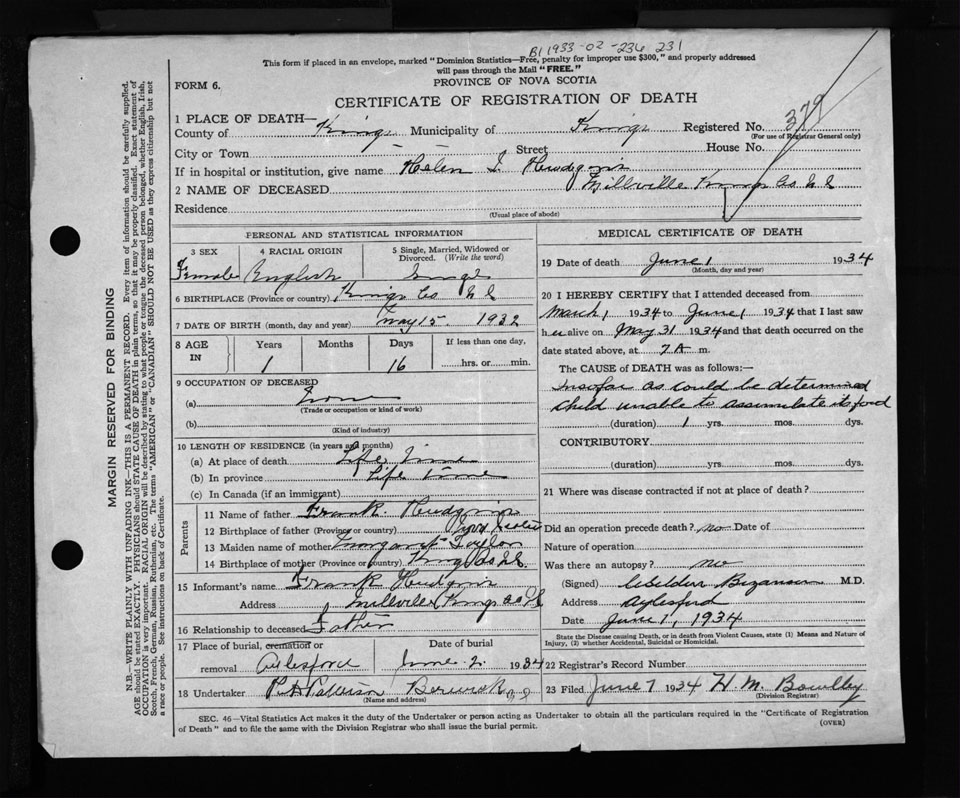 B1 1933-02-236 231
This form if placed in an envelope, marked "Dominion Statistics—Free, penalty for improper use $300," and properly addressed
will pass through the Mail "FREE."
FORM 6.
PROVINCE OF NOVA SCOTIA
CERTIFICATE OF REGISTRATION OF DEATH
1 PLACE OF DEATH—
County of Kings Municipality of Kings Registered No. 379
(For use of Registrar General only)
City or Town Street House No.
If in hospital or institution, give name Helen I. Hudgins
2 NAME OF DECEASED Millville Kings Co N S
Residence
(Usual place of abode)
PERSONAL AND STATISTICAL INFORMATION
3 SEX 4 RACIAL ORIGIN 5 Single, Married, Widowed or Divorced. (Write the word)
Female English Single
6 BIRTHPLACE (Province or country) Kings Co N S
7 DATE OF BIRTH (month, day and year) May 15. 1932
8 AGE IN Years Months Days If less than one day,
1 16 hrs. or min.
9 OCCUPATION OF DECEASED
(a) None
(Trade or occupation or kind of work)
(b)
(Kind of industry)
10 LENGTH OF RESIDENCE (in years and months)
(a) At place of death Life Time
(b) In province Life time
(c) In Canada (if an immigrant)
Parents
11 Name of father Frank Hudgins
12 Birthplace of father (Province or country) Nova Scotia
13 Maiden name of mother Margaret Taylor
14 Birthplace of mother (Province or country) Kings Co N.S.
15 Informant's name Frank Hudgins
Address Millville Kings Co N S
16 Relationship to deceased Father
17 Place of burial, cremation or removal Aylesford Date of burial June 2. 1934
18 Undertaker Berwick N S
(Name and address)
MEDICAL CERTIFICATE OF DEATH
19 Date of death June 1 1934
(Month, day and year)
20 I HEREBY CERTIFY that I attended deceased from
March 1 1934 to June 1 1934 that I last saw
h er alive on May 31 1934 and that death occurred on
date stated above, at 7 A m.
The CAUSE of DEATH was as follows:—
Insofar as could be determined
child unable to assimulate its food
(duration) 1 yrs. mos. dys.
CONTRIBUTORY
(duration) yrs. mos. dys.
21 Where was disease contracted if not at place of death?
Did an operation precede death? no Date of
Nature of operation
Was there an autopsy? no
(Signed) M.D.
Address Aylesford
Date June 1, 1934
State the Disease causing Death, or in death from Violent Causes, state (1) Means and Nature of
Injury, (2) whether Accidental, Suicidal or Homicidal.
22 Registrar's Record Number
23 Filed June 7 1934 H. M.
(Division Registrar)
SEC. 46—Vital Statistics Act makes it the duty of the Undertaker or person acting as Undertaker to obtain all the particulars required in the "Certificate of Registration
of Death" and to file the same with the Division Registrar who shall issue the burial permit.
(OVER)
MARGIN RESERVED FOR BINDING
N.B.—WRITE PLAINLY WITH UNFADING INK—THIS IS A PERMANENT RECORD. Every item of information should be carefully supplied.
AGE should be stated EXACTLY. PHYSICIANS should STATE CAUSE OF DEATH in plain terms, so that it may be properly classified. Exact statement of
OCCUPATION is very important. RACIAL ORIGIN will be described by stating to what people or tongue the deceased person belonged, whether English, Irish,
Scotch, French, German, Russian, Ruthenian, etc. The terms "AMERICAN" or "CANADIAN" SHOULD NOT BE USED as they express citizenship but not
a race or people. See instructions on back of Certificate.